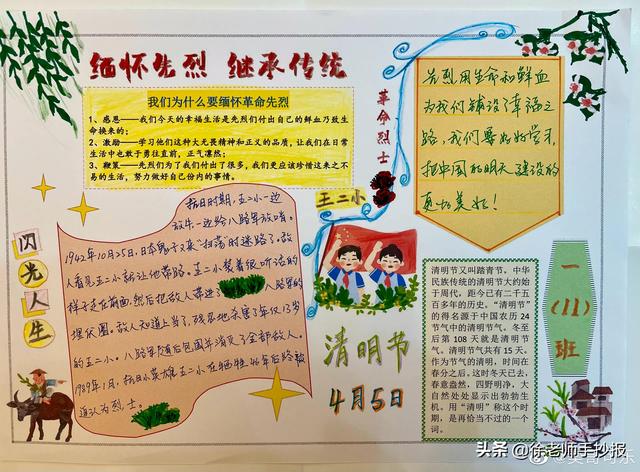 缅怀先烈 继承传统
我们为什么要缅怀革命先烈
1、感恩——我们今天的幸福生活是先烈们付出自己的鲜血乃致生
命换来的；
2、激励——学习他们这种大无畏精神和正义的品质，让我们在日常
生活中也敢于勇往直前，正气凛然；
3、鞭策——先烈们为了我们付出了很多，我们更应该珍惜这来之不
易的生活，努力做好自己份内的事情。
革命烈士
王二小
先烈用生命和鲜血
为我们铺设了幸福之
路，我们要好好学习，
把中国的明天建设的
更加美好！
闪光人生
抗日时期，王二小一边
放牛一边给八路军放哨。
1942年10月25日，日本鬼子又来"扫荡"时迷路了。敌
人看见王二小就让他带路。王二小装着很听话的
样子走在前面，然后把敌人带进了八路军的
埋伏圈。敌人知道上当了，残忍地杀害了年仅13岁
的王二小。八路军随后包围并消灭了全部敌人。
1989年1月，抗日小英雄王二小在牺牲46年后终被
追认为烈士。
清明节
4月5日
清明节又叫踏青节。中华
民族传统的清明节大约始
于周代，距今已有二千五
百多年的历史。"清明节"
的得名源于中国农历 24
节气中的清明节气。冬至
后第 108 天就是清明节
气。清明节气共有 15 天。
作为节气的清明，时间在
春分之后。这时冬天已去，
春意盎然，四野明净，大
自然处处显示出勃勃生
机。用"清明"称这个时
期，是再恰当不过的一个
词。
一(11)班
头条 @徐老师手抄报